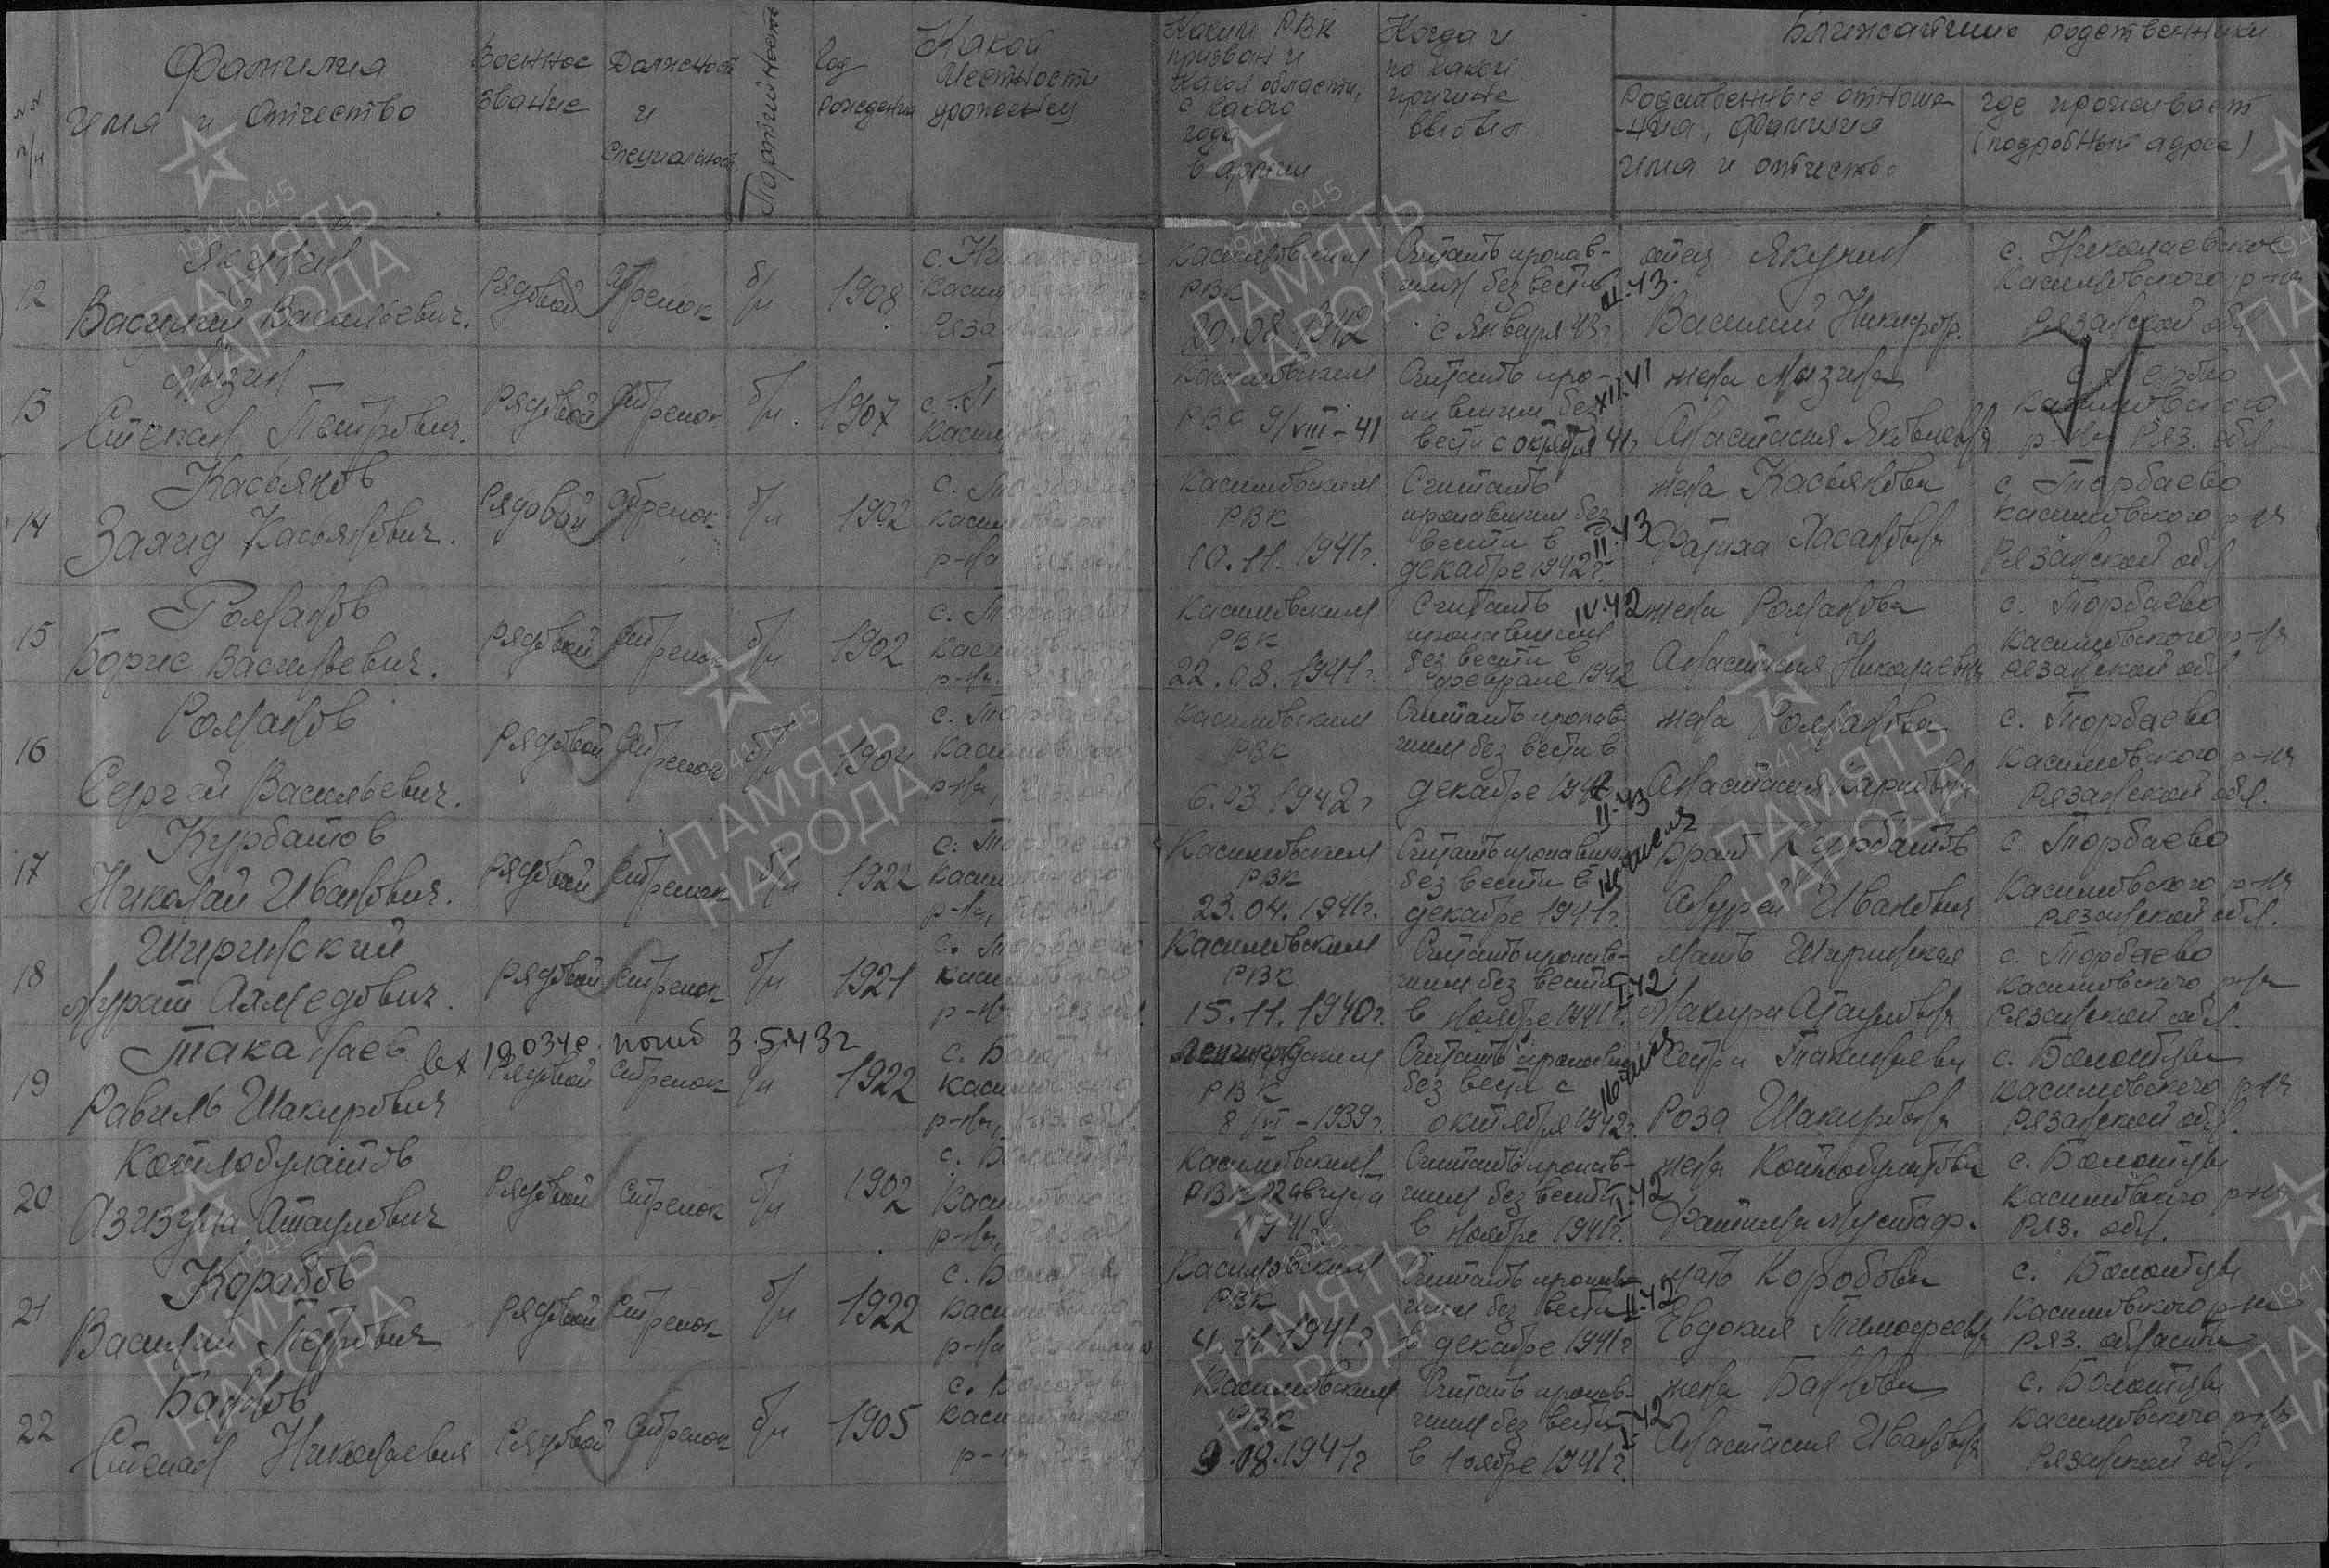 №№ п/н
Фамилия
имя и отчество
Военное
звание
Должность
и
специальность
Партийность
Год
рождения
Какой
местности
уроженец
Каким РВК
призван и
какой области,
с какого
года
в армии
Когда и
по какой
причине
выбыл
Ближайшие родственники
Родственные отноше-
-ния, фамилия
имя и отчество
где проживает
(подробный адрес)
12
Якунин
Василий Васильевич.
Рядовой
стрелок
б/п
1908
Касимовским
РВК
20.08.1942
Считать пропав-
шим без вести
с января 43г
III-43.
отец Якунин
Василий Никифор.
с. Николаевское
Касимовского р-на
Рязанской обл
Мызин
Степан Петрович.
Рядовой
стрелок
б/п.
1907
Касимовским
РВК 9/VIII-41
Считать про-
павшим без
вести с октября 41г
XII-41
жена Мызина
Анастасия Яковлевна
Касимовского
р-на Ряз. обл.
14
Касьянов
Заянд Касьянович.
Рядовой
стрелок
б/п
1902
с. Торбаево
Касимовского
р-на Ряз. обл.
Касимовским
РВК
10.11.1941г.
Считать
пропавшим без
вести в
декабре 1942г.
II-43
жена Касьянова
Фатиха Хасановна
с Торбаево
Касимовского р-на
Рязанской обл
15
Романов
Борис Васильевич.
Рядовой
стрелок
б/п
1902
с. Торбаево
Касимовского
р-на. Ряз. обл
Касимовским
РВК
22.08.1941г.
Считать
пропавшим
без вести в
феврале 1942
IV-42
жена Романова
Анастасия Николаевна
с. Торбаево
Касимовского р-на
Рязанской обл
16
Романов
Сергей Васильевич.
Рядовой
стрелок
б/п
1904
с. Торбаево
Касимовского
р-на, Ряз. обл
Касимовским
РВК
6.03.1942г
Считать пропав-
шим без вести в
декабре 1942
II-43
жена Романова
Анастасия Карповна
с. Торбаево
Касимовского р-на
Рязанской обл.
17
Курбатов
Николай Иванович.
Рядовой
стрелок
б/п
1922
с. Торбаево
Касимовского
р-на, Ряз. обл
Касимовским
РВК
23.04.1941г.
Считать пропавшим
без вести в
декабре 1941г.
брат Курбатов
Андрей Иванович
с Торбаево
Касимовского р-на
Рязанской обл.
18
Ширинский
Мурат Ахмедович.
Рядовой
стрелок
б/п
1921
с. Торбаево
Касимовского
р-на, Ряз. обл.
Касимовским
РВК
15.11.1940г.
Считать пропав-
шим без вести
в ноябре 1941г.
I-42
мать Ширинская
с. Торбаево
Касимовского р-на
Рязанской обл.
погиб 3.5.43г
19
Таканаев
Равиль Шакирович
Рядовой
стрелок
б/п
1922
с. Болотцы
Касимовского
р-на, Ряз. обл.
Ленинградским
РВК
8/VI-1939г.
без вести с
октября 1942г.
сестра Таканаева
Роза Шакировна
с. Болотцы
Касимовского р-на
Рязанской обл.
20
Котлобулатов
Азизула Атаулович
Рядовой
стрелок
б/п
1902
с. Болотцы
Касимовского
р-на, Ряз. обл
Касимовским
РВК 22 августа
1941г
Считать пропав-
шим без вести
в ноябре 1941г.
I-42
жена Котлобулатова
Фатима Мустаф.
с. Болотцы
Касимовского р-на
Ряз. обл.
21
Коробов
Василий Петрович
Рядовой
стрелок
б/п
1922
с. Болотцы
Касимовского
Касимовским
РВК
4.11.1941г
Считать пропав-
шим без вести
в декабре 1941г
II-42
мать Коробова
Евдокия Тимофеевна
с. Болотцы
Касимовского р-на
Ряз. области
22
Баннов
Степан Николаевич
Рядовой
стрелок
б/п
1905
с. Болотцы
Касимовского
р-на Ряз. обл
Касимовским
РВК
9.08.1941г
Считать пропав-
шим без вести
в ноябре 1941г.
I-42
жена Баннова
Анастасия Ивановна
с. Болотцы
Касимовского р-на
Рязанской обл.
1941-1945
ПАМЯТЬ
НАРОДА